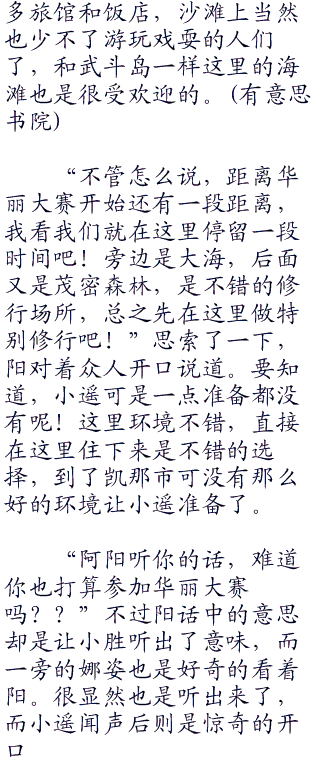 多旅馆和饭店，沙滩上当然
也少不了游玩戏耍的人们
了，和武斗岛一样这里的海
滩也是很受欢迎的。(有意思
书院)
“不管怎么说，距离华
丽大赛开始还有一段距离，
我看我们就在这里停留一段
时间吧！旁边是大海，后面
又是茂密森林，是不错的修
行场所，总之先在这里做特
别修行吧！”思索了一下，
阳对着众人开口说道。要知
道，小遥可是一点准备都没
有呢！这里环境不错，直接
在这里住下来是不错的选
择，到了凯那市可没有那么
好的环境让小遥准备了。
“阿阳听你的话，难道
你也打算参加华丽大赛
吗？？”不过阳话中的意思
却是让小胜听出了意味，而
一旁的娜姿也是好奇的看着
阳。很显然也是听出来了，
而小遥闻声后则是惊奇的开
口